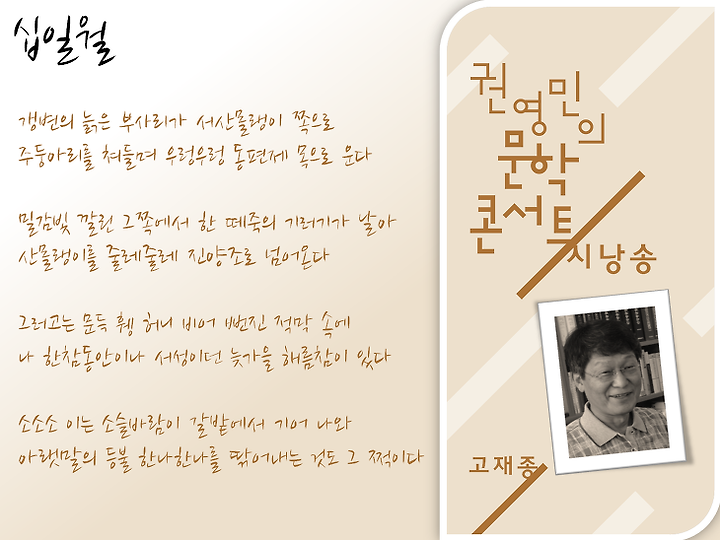 십일월
갱변의 늙은 부사리가 서산몰랭이 쪽으로
주둥아리를 쳐들며 우렁우렁 동편제 목으로 운다
밀감빛 깔린 그쪽에서 한 떼죽의 기러기가 날아
산몰랭이를 줄레줄레 진양조로 넘어온다
그러고는 문득 휑 허니 비어 뻔진 적막 속에
나 한참동안이나 서성이던 늦가을 해름참이 있다
소소소 이는 소슬바람이 갈밭에서 기어 나와
아랫말의 등불 한나한나를 딲어내는 것도 그 쩍이다
권영민의
문학
콘서트
시낭송
고재종